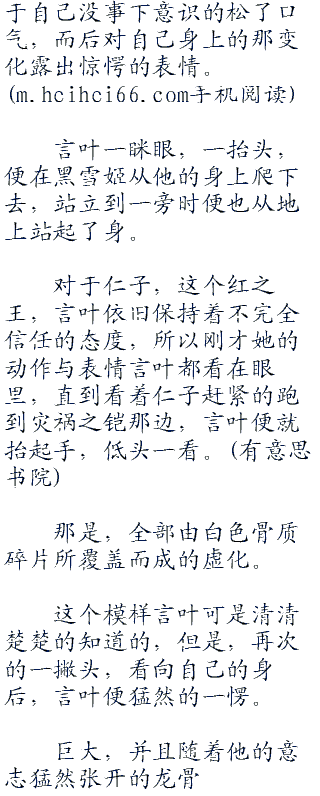 于自己没事下意识的松了口
气，而后对自己身上的那变
化露出惊愕的表情。
(m.hcihci66.com手机阅读)
言叶一眯眼，一抬头，
便在黑雪姬从他的身上爬下
去，站立到一旁时便也从地
上站起了身。
对于仁子，这个红之
王，言叶依旧保持着不完全
信任的态度，所以刚才她的
动作与表情言叶都看在眼
里，直到看着仁子赶紧的跑
到灾祸之铠那边，言叶便就
抬起手，低头一看。(有意思
书院)
那是，全部由白色骨质
碎片所覆盖而成的虚化。
这个模样言叶可是清清
楚楚的知道的，但是，再次
的一撇头，看向自己的身
后，言叶便猛然的一愣。
巨大，并且随着他的意
志猛然张开的龙骨